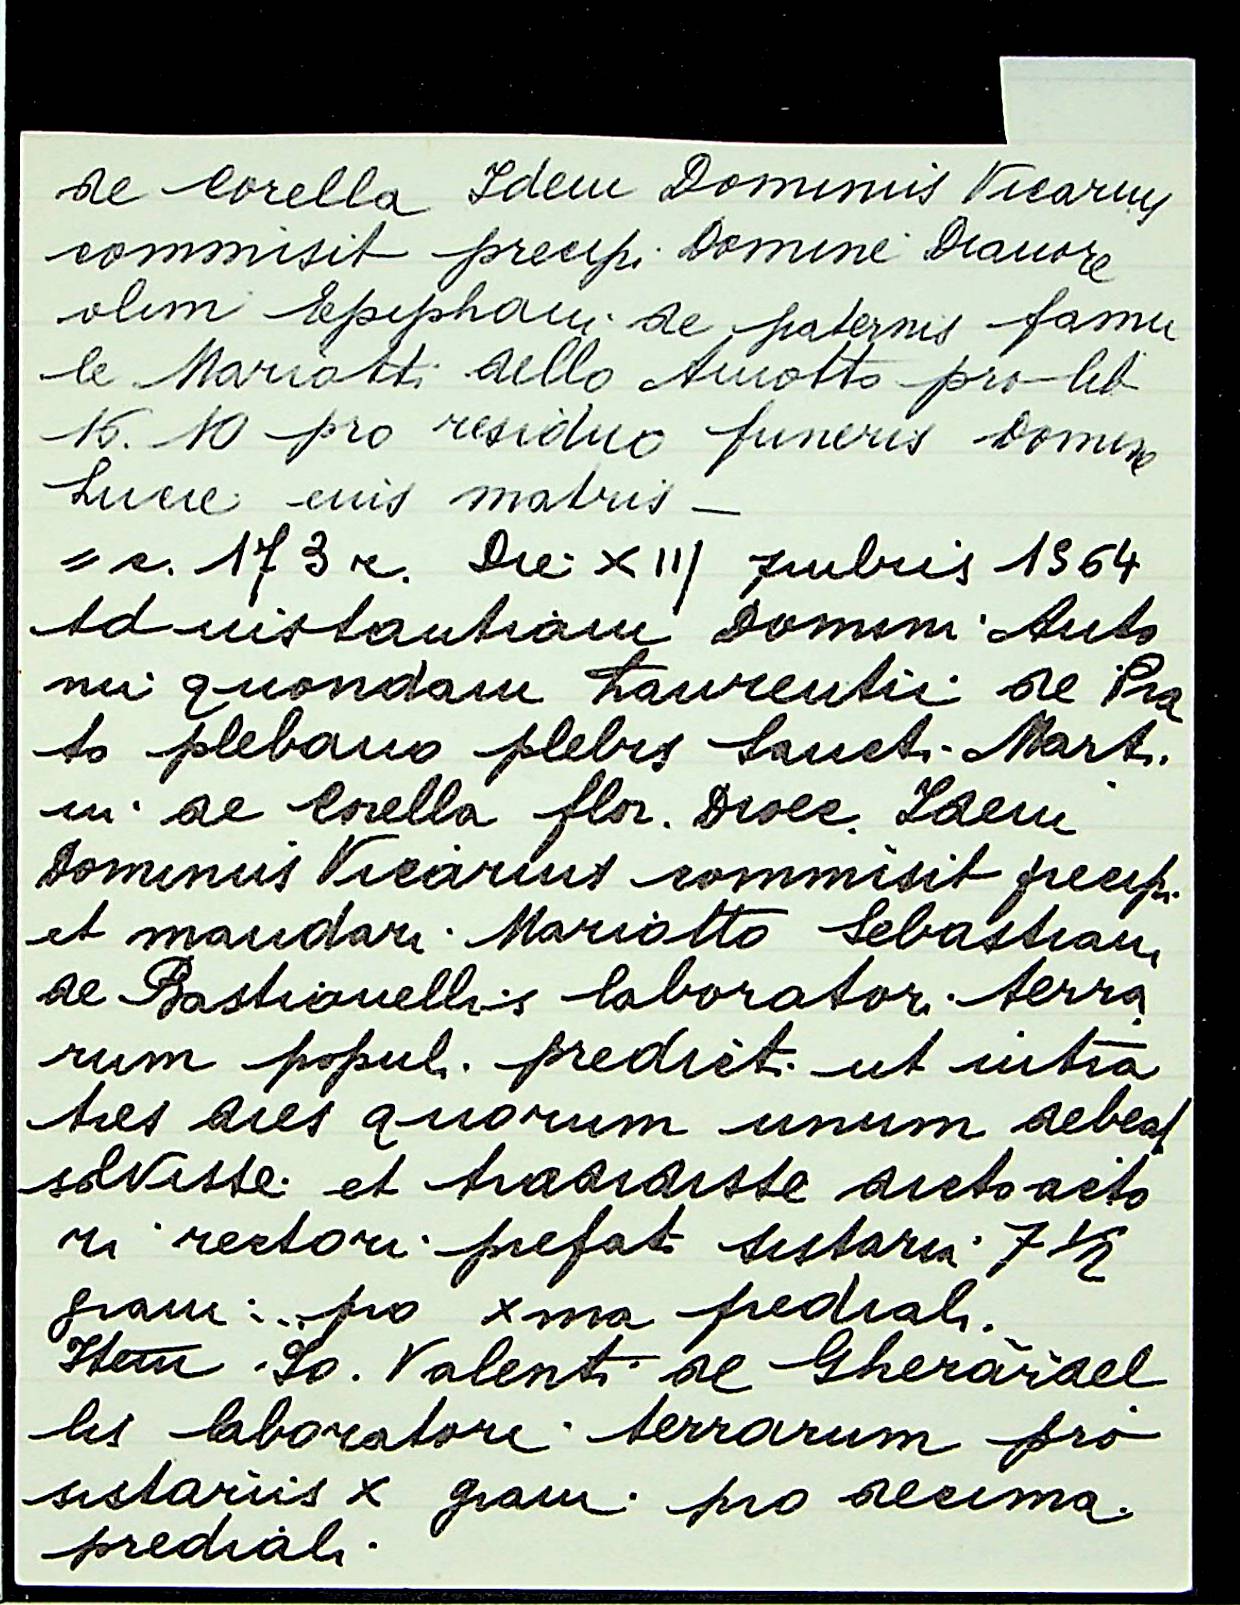 de Corella Idem Dominus Vicarius
commisit precipi Domine Dianore
olim Epiphani de paternis famu
le Mariotti dello Amotto pro lib
15. 10 pro residuo funeris Domine
Lucie eius matris —
= c. 173 r. Die XIII 7mbris 1564
Ad instantiam Domini Anto
nii quondam Laurentii de Pra
to plebano plebis Sancti Marti
ni de Corella flor. Dioec. Idem
Dominus Vicarius commisit precipi
et mandari Mariotto Sebastiani
de Bastianellis laboratori terra
rum populi predicti ut intra
tres dies quorum unum debeat
solvisse et tradidisse dicto acto
ri rectori prefati sistaria 7 1/2
grani ... pro xma prediali.
Item Io. Valenti de Gherardel
lis laboratore terrarum pro
sistariis x grani pro decima
prediali.